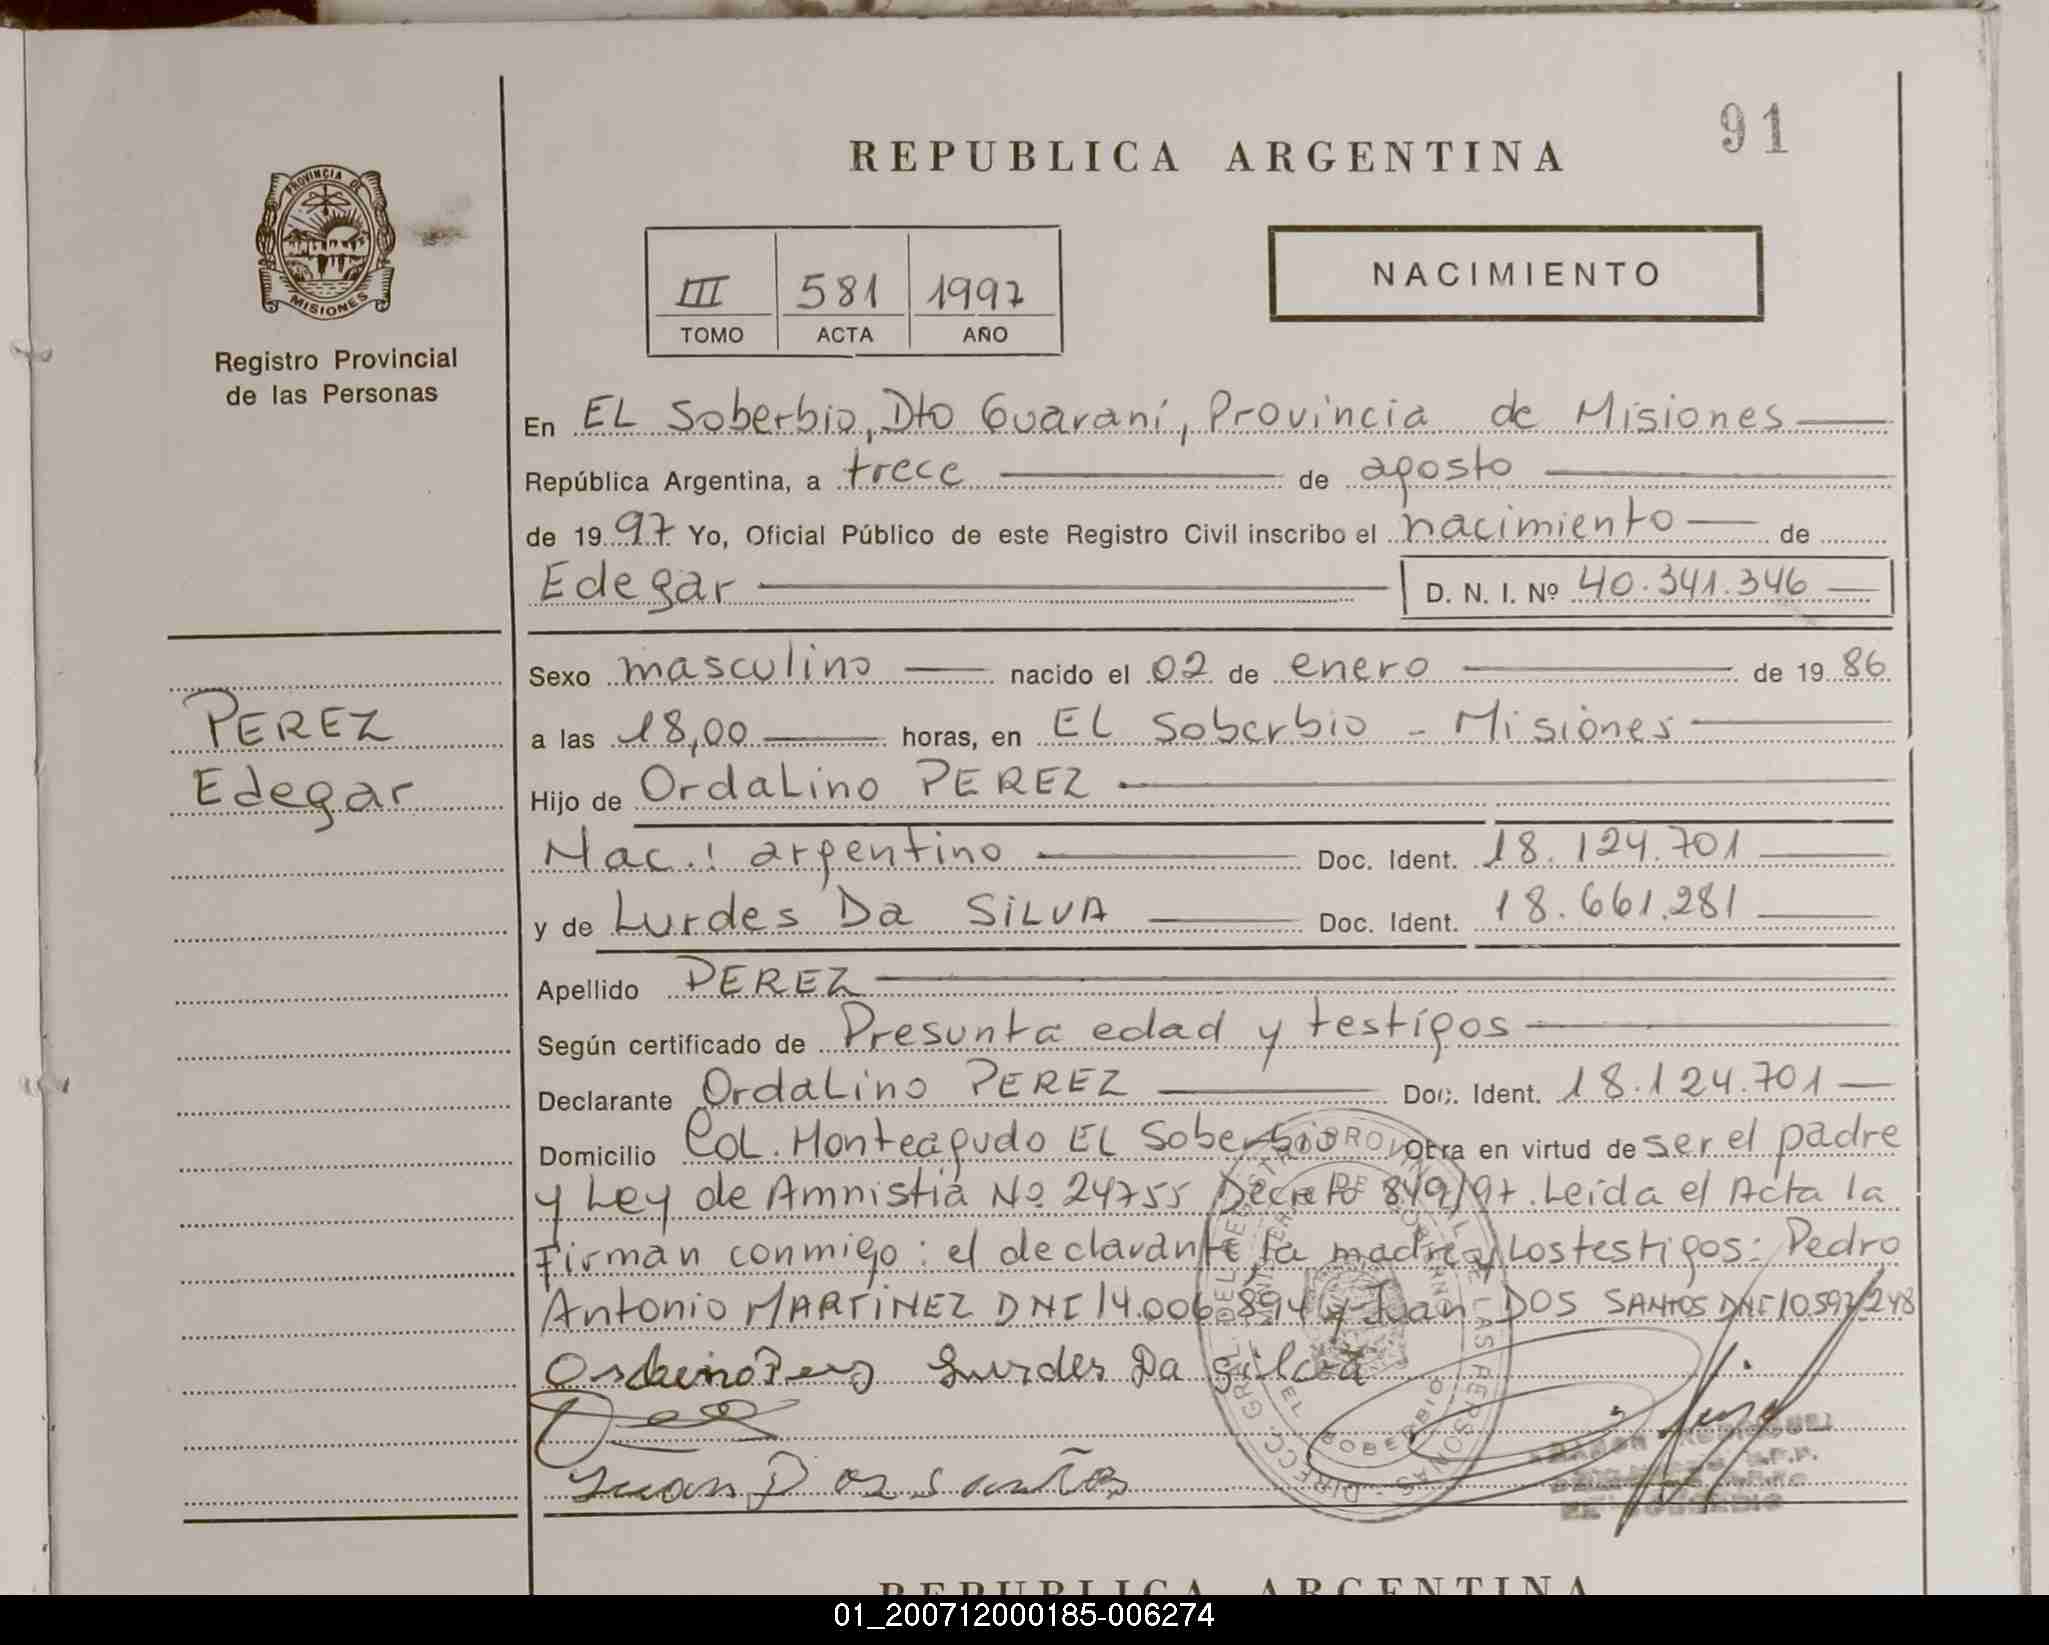 91
REPUBLICA ARGENTINA
PROVINCIA DE
MISIONES
Registro Provincial
de las Personas
III 581 1997
TOMO ACTA AÑO
NACIMIENTO
En EL Soberbio, Dto Guaraní, Provincia de Misiones
República Argentina, a trece de agosto
de 1997 Yo, Oficial Público de este Registro Civil inscribo el nacimiento de
Edegar D. N. I. Nº 40.341.346
PEREZ
Edegar
Sexo masculino nacido el 02 de enero de 1986
a las 18,00 horas, en EL Soberbio - Misiones
Hijo de OrdaLino PEREZ
Nac.: argentino Doc. Ident. 18.124.701
y de Lurdes Da SILVA Doc. Ident. 18.661.281
Apellido PEREZ
Según certificado de Presunta edad y testigos
Declarante OrdaLino PEREZ Doc. Ident. 18.124.701
Domicilio CoL. Monteagudo EL Soberbio Obra en virtud de ser el padre
y Ley de Amnistia Nº 24755 Decreto 849/97. Leída el Acta la
Firman conmigo: el declarante, la madre y Los testigos: Pedro
Antonio MARTINEZ DNI 14.006.894 y Juan DOS SANTOS DNI 10.597.248
Lurdes Da Silva
Juan Dos Santos
DIRECC. GRAL. DEL REGISTRO PROVINCIAL DE LAS PERSONAS
EL SOBERBIO
REPUBLICA ARGENTINA
01_200712000185-006274